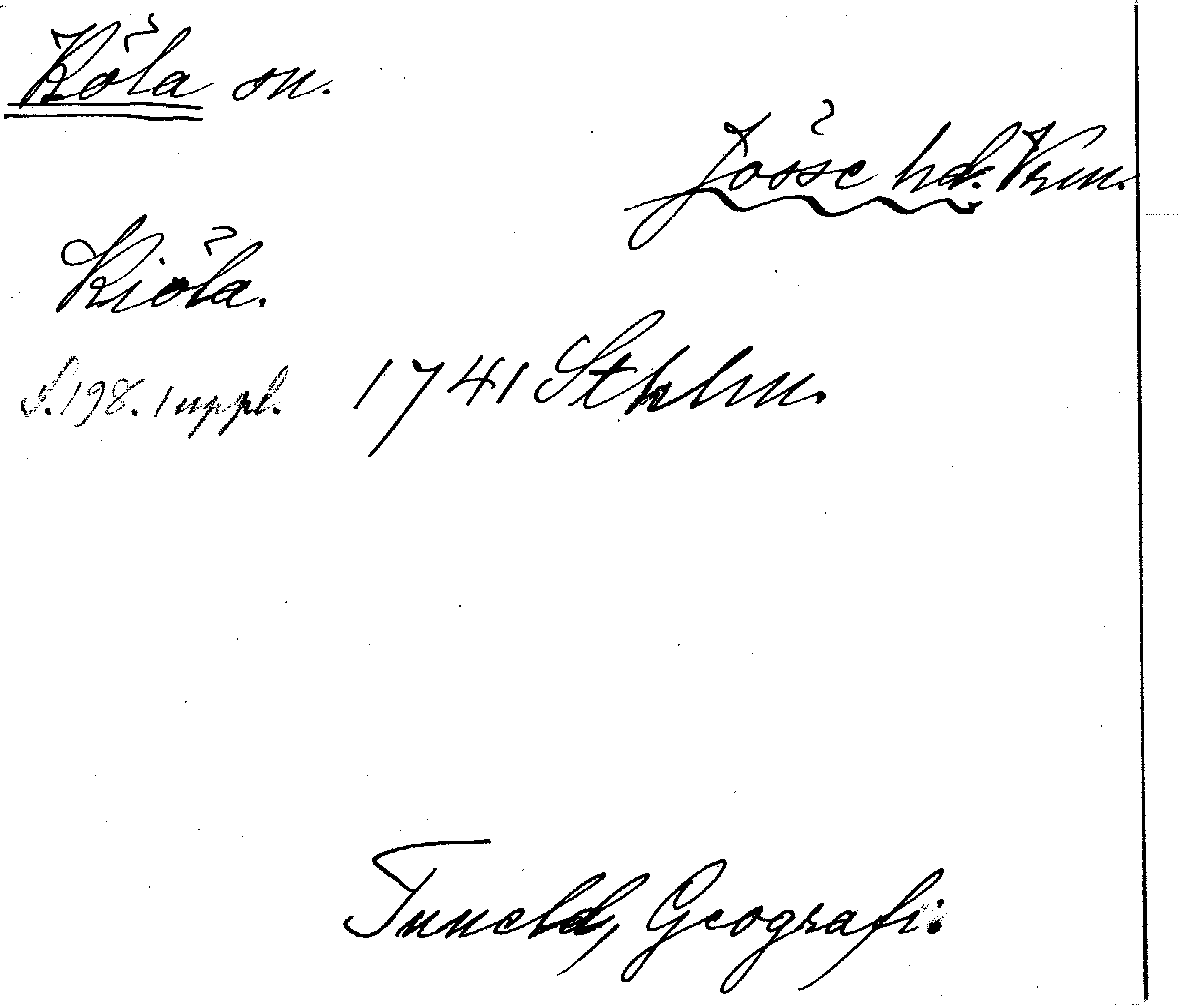 Köla sn.
Jösse hd. Vrm.
Kiöla.
S. 198. 1 uppl. 1741 Sthlm.
Tuneld, Geografi.